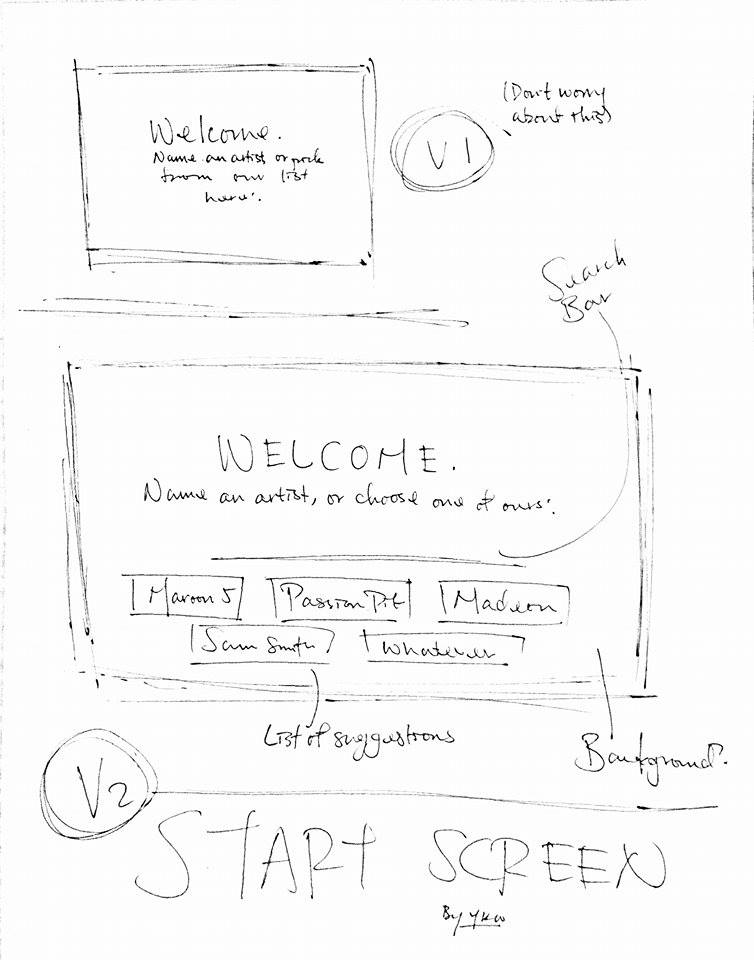 Welcome.
Name an artist, or pick
from our list
here:.
V1
(Don't worry
about this)
Search
Bar
WELCOME.
Name an artist, or choose one of ours:.
Maroon 5
Passion Pit
Madeon
Sam Smith
Whatever
List of suggestions
Background?
V2
START SCREEN
By